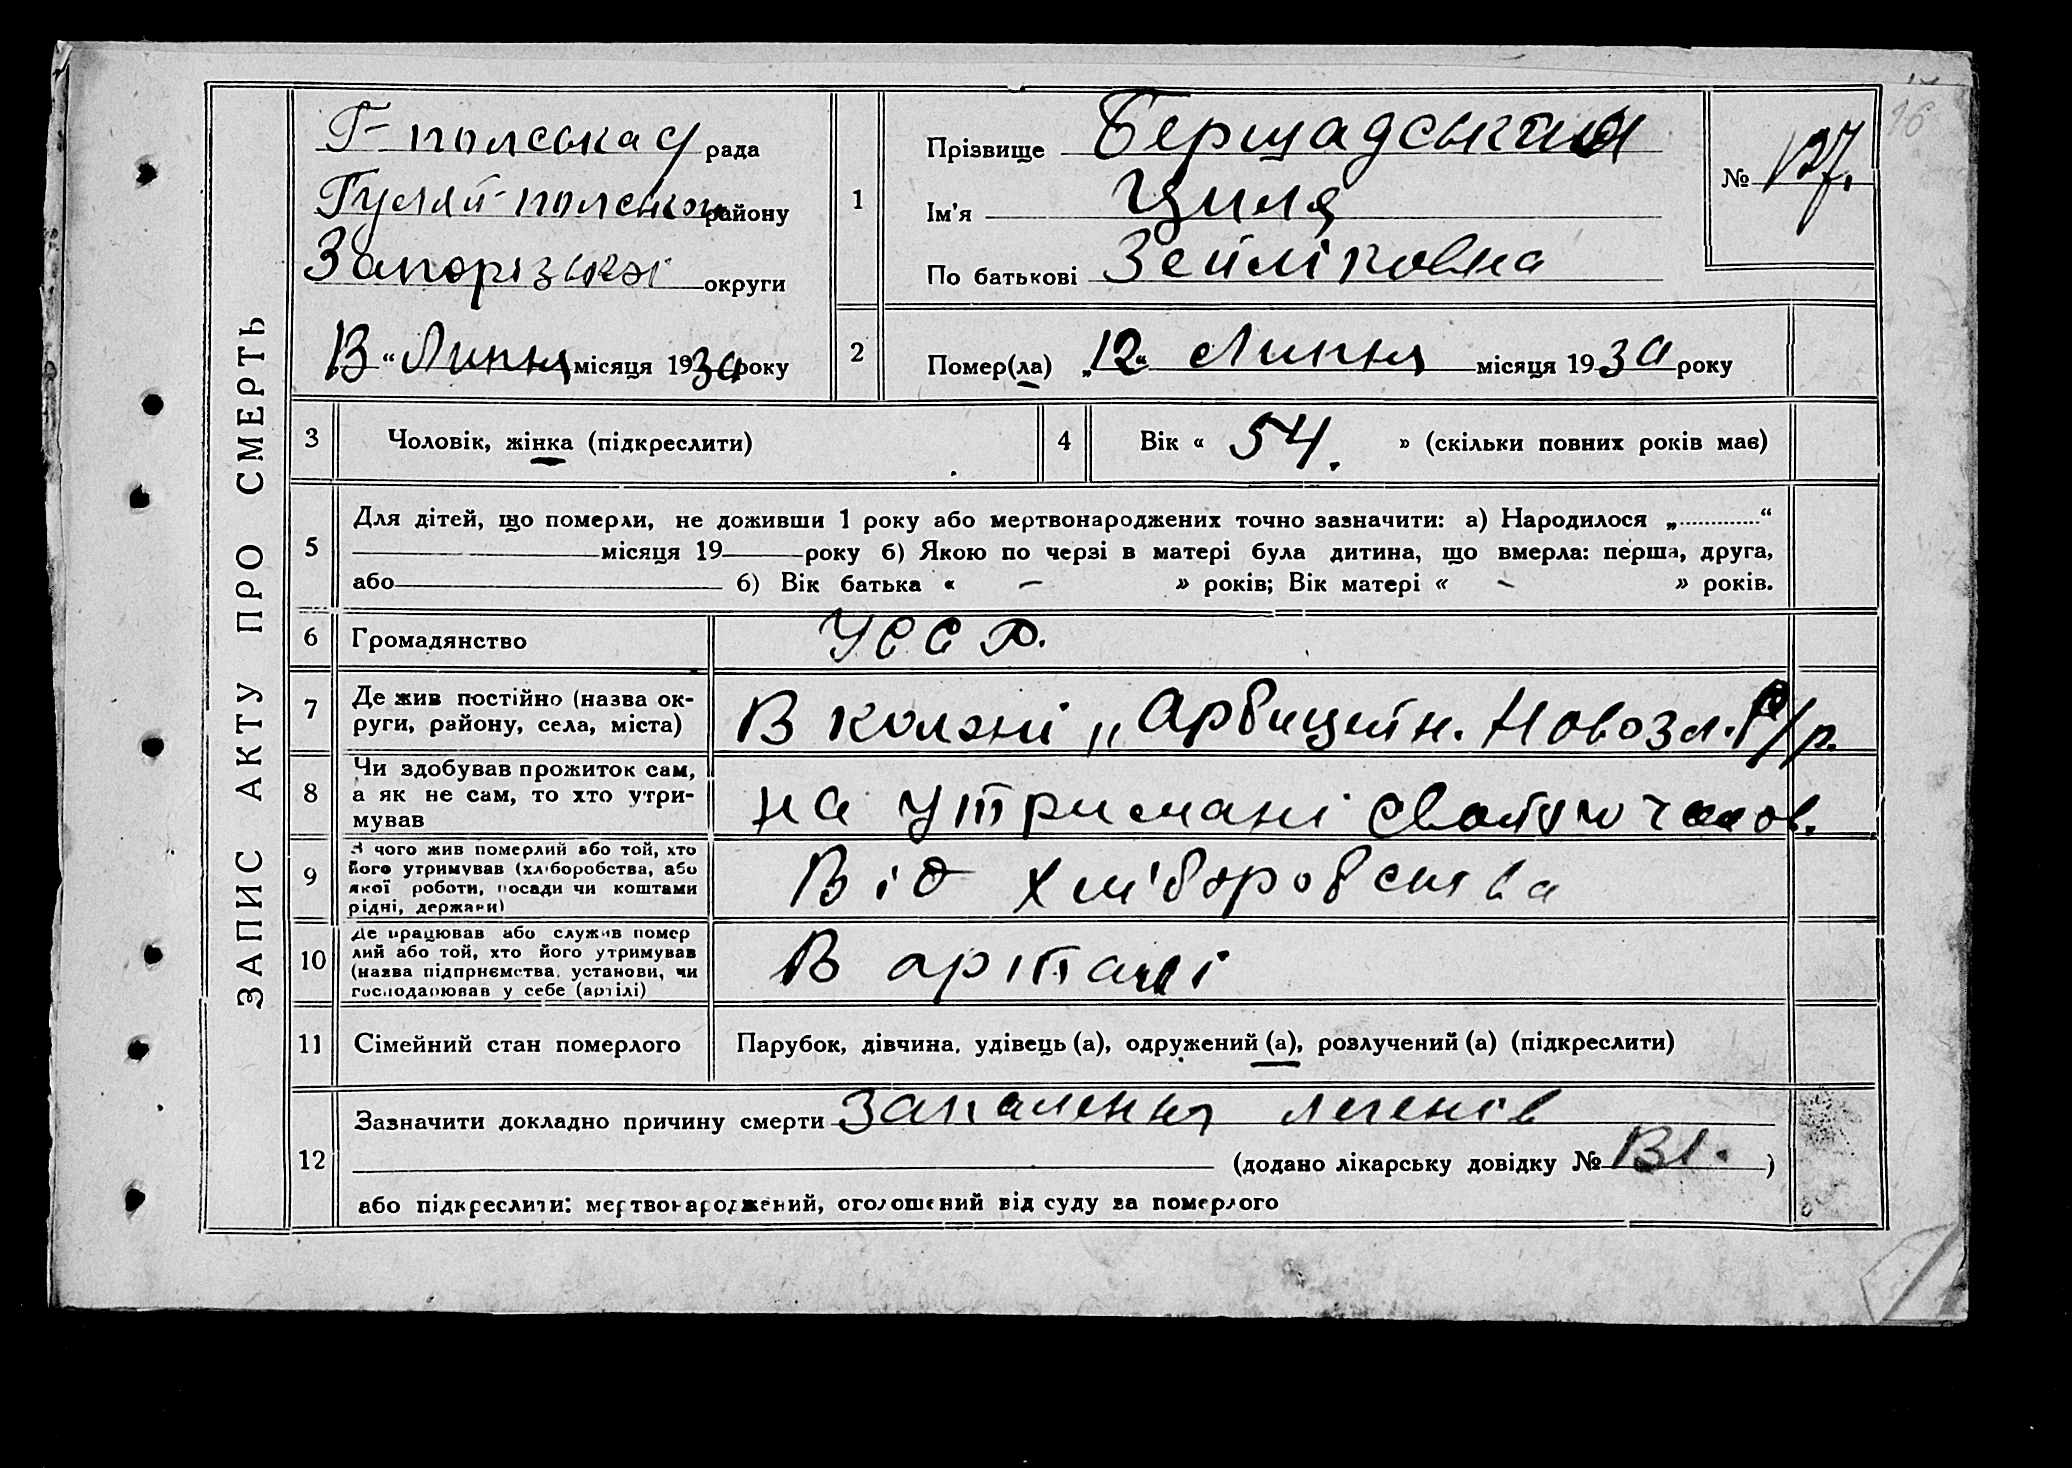 ЗАПИС АКТУ ПРО СМЕРТЬ
Г-полська рада
Гуляй-полської району
Запорізької округи
13 “ Липня місяця 1930 року
1
Прізвище Бершадський
Ім’я Циля
По батькові Зейліковна
№ 127.
16
2
Помер(ла) „12“ Липня місяця 1930 року
3
Чоловік, жінка (підкреслити)
4
Вік « 54. » (скільки повних років має)
5
Для дітей, що померли, не доживши 1 року або мертвонароджених точно зазначити: а) Народилося „ “
місяця 19 року б) Якою по черзі в матері була дитина, що вмерла: перша, друга,
або б) Вік батька « – » років; Вік матері « – » років.
6
Громадянство УССР.
7
Де жив постійно (назва ок-
руги, району, села, міста)
В колоні „Арбицейн. Новозл. Р/р.
8
Чи здобував прожиток сам,
а як не сам, то хто утри-
мував
на утримані чолов.
9
З чого жив померлий або той, хто
його утримував (хліборобства, або
якої роботи, посади чи коштами
рідні, держави)
Від хліборобства
10
Де працював або служив помер
лий або той, хто його утримував
(назва підприємства, установи, чи
господарював у себе (артілі)
В артілі
11
Сімейний стан померлого
Парубок, дівчина, удівець (а), одружений (а), розлучений (а) (підкреслити)
12
Зазначити докладно причину смерти Запалення легенів
(додано лікарську довідку № 131. )
або підкреслити: мертвонароджений, оголошений від суду за померлого